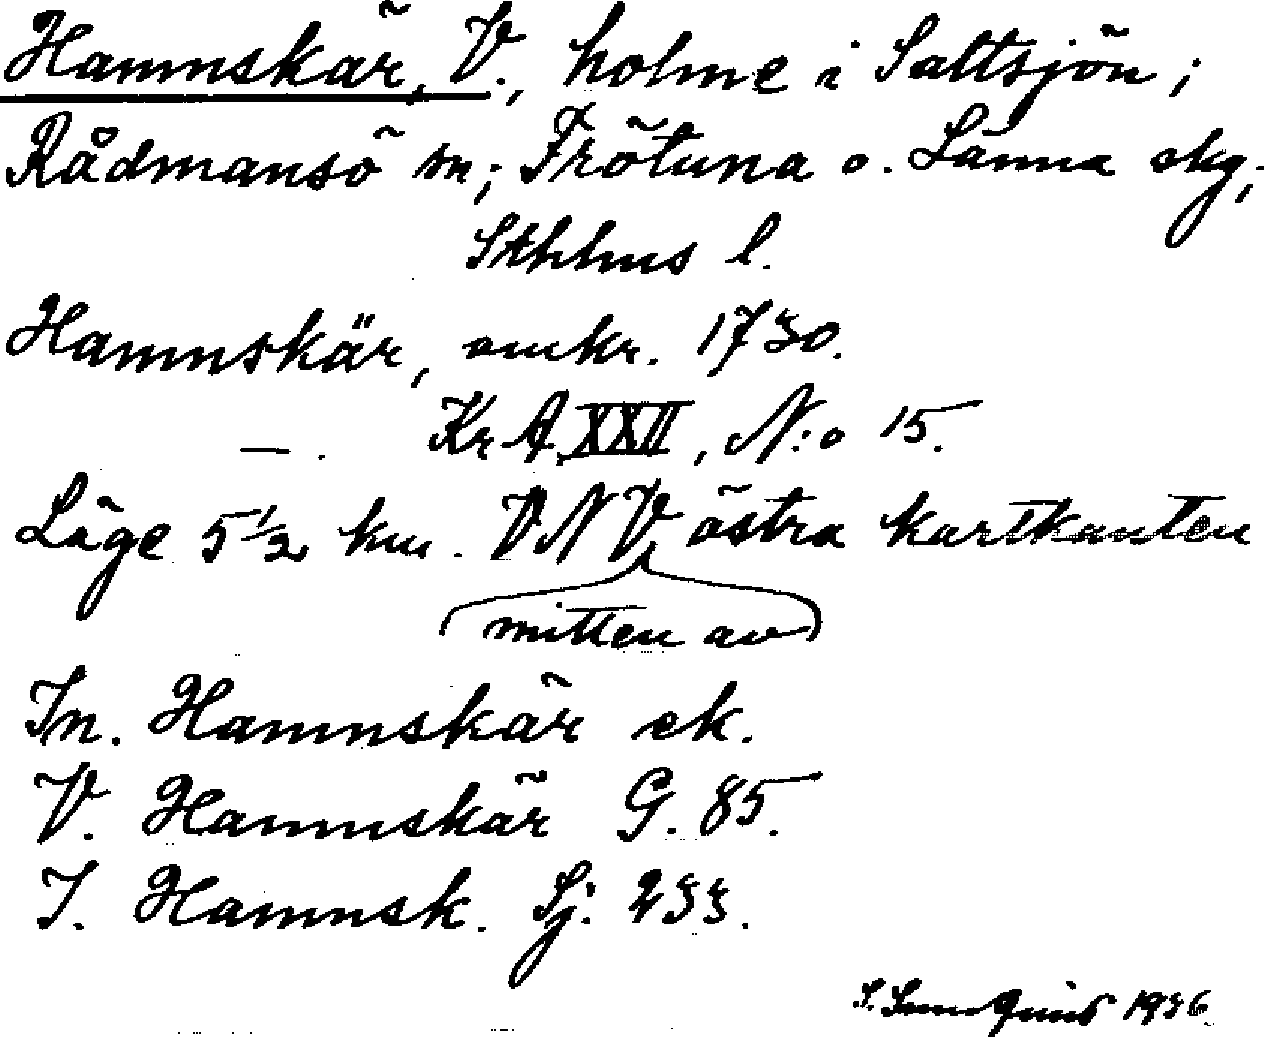 Hamnskär, V., holme i Saltsjön;
Rådmansö sn; Frötuna o. Länna skg;
Sthlms l.
Hamnskär, omkr. 1730.
— . Kr A, XXII, N:o 15.
Läge 5½ km. VNV östra kartkanten
mitten av
In. Hamnskär ek.
V. Hamnskär G. 85.
I. Hamnsk. Sj: 233.
1936